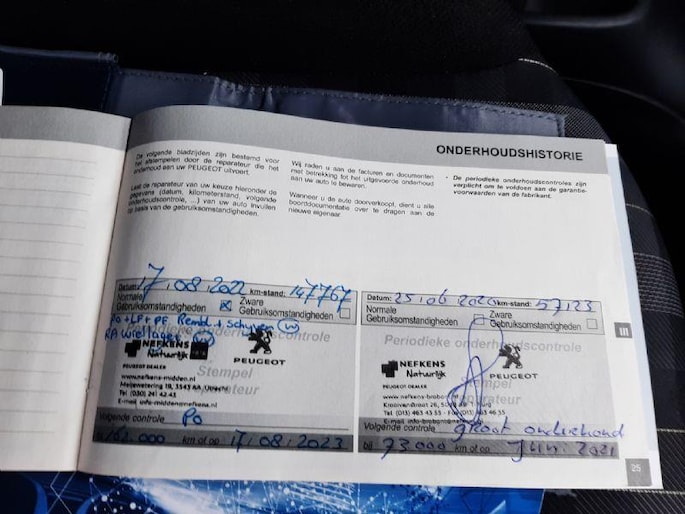 ONDERHOUDSHISTORIE
De volgende bladzijden zijn bestemd voor
het afstempelen door de reparateur die het
onderhoud aan uw PEUGEOT uitvoert.
Laat de reparateur van uw keuze hieronder de
gegevens (datum, kilometerstand, volgende
onderhoudscontrole, ...) van uw auto invullen
op basis van de gebruiksomstandigheden.
Wij raden u aan de facturen en documenten
met betrekking tot het uitgevoerde onderhoud
aan uw auto te bewaren.
Wanneer u de auto doorverkoopt, dient u alle
boorddocumentatie over te dragen aan de
nieuwe eigenaar
• De periodieke onderhoudscontroles zijn
verplicht om te voldoen aan de garantie-
voorwaarden van de fabrikant.
Datum: 17/08/2022 km-stand: 147767
Normale
Gebruiksomstandigheden
Zware
Gebruiksomstandigheden
Periodieke onderhoudscontrole
NEFKENS
Natuurlijk
PEUGEOT
PEUGEOT DEALER
Stempel
reparateur
www.nefkens-midden.nl
Meijewetering 19, 3543 AA Utrecht
Tel (030) 241 42 43
E-mail info-midden@nefkens.nl
Volgende controle Po
162.000 km of op 17/08/2023
Datum: 25/06/2020 km-stand: 57123
Normale
Gebruiksomstandigheden
Zware
Gebruiksomstandigheden
Periodieke onderhoudscontrole
NEFKENS
Natuurlijk
PEUGEOT
PEUGEOT DEALER
Stempel
reparateur
Volgende controle groot onderhoud
bij 73.000 km of op Juni 2021
III
25